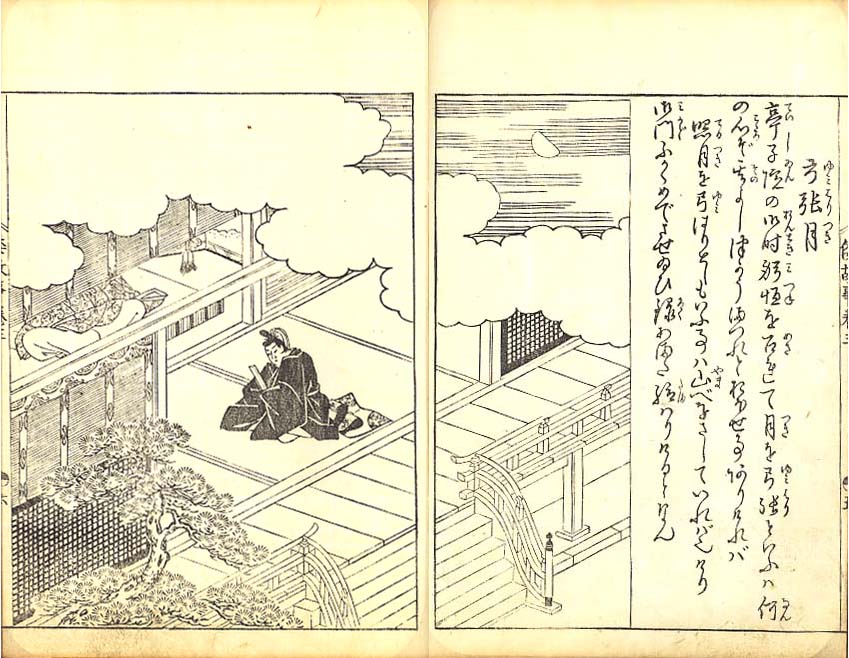 弓張月
亭子院の御時躬恒を召れて月を弓張といふハ何
の心ぞ其よしつかうまつれとおほせ事ありけれバ
照月を弓はりとしもいふ事ハ山べをさしていれバ也けり
御門ふかくめでさせ給ひ禄あまた給ハりけるとなん
故事 巻三
五
六